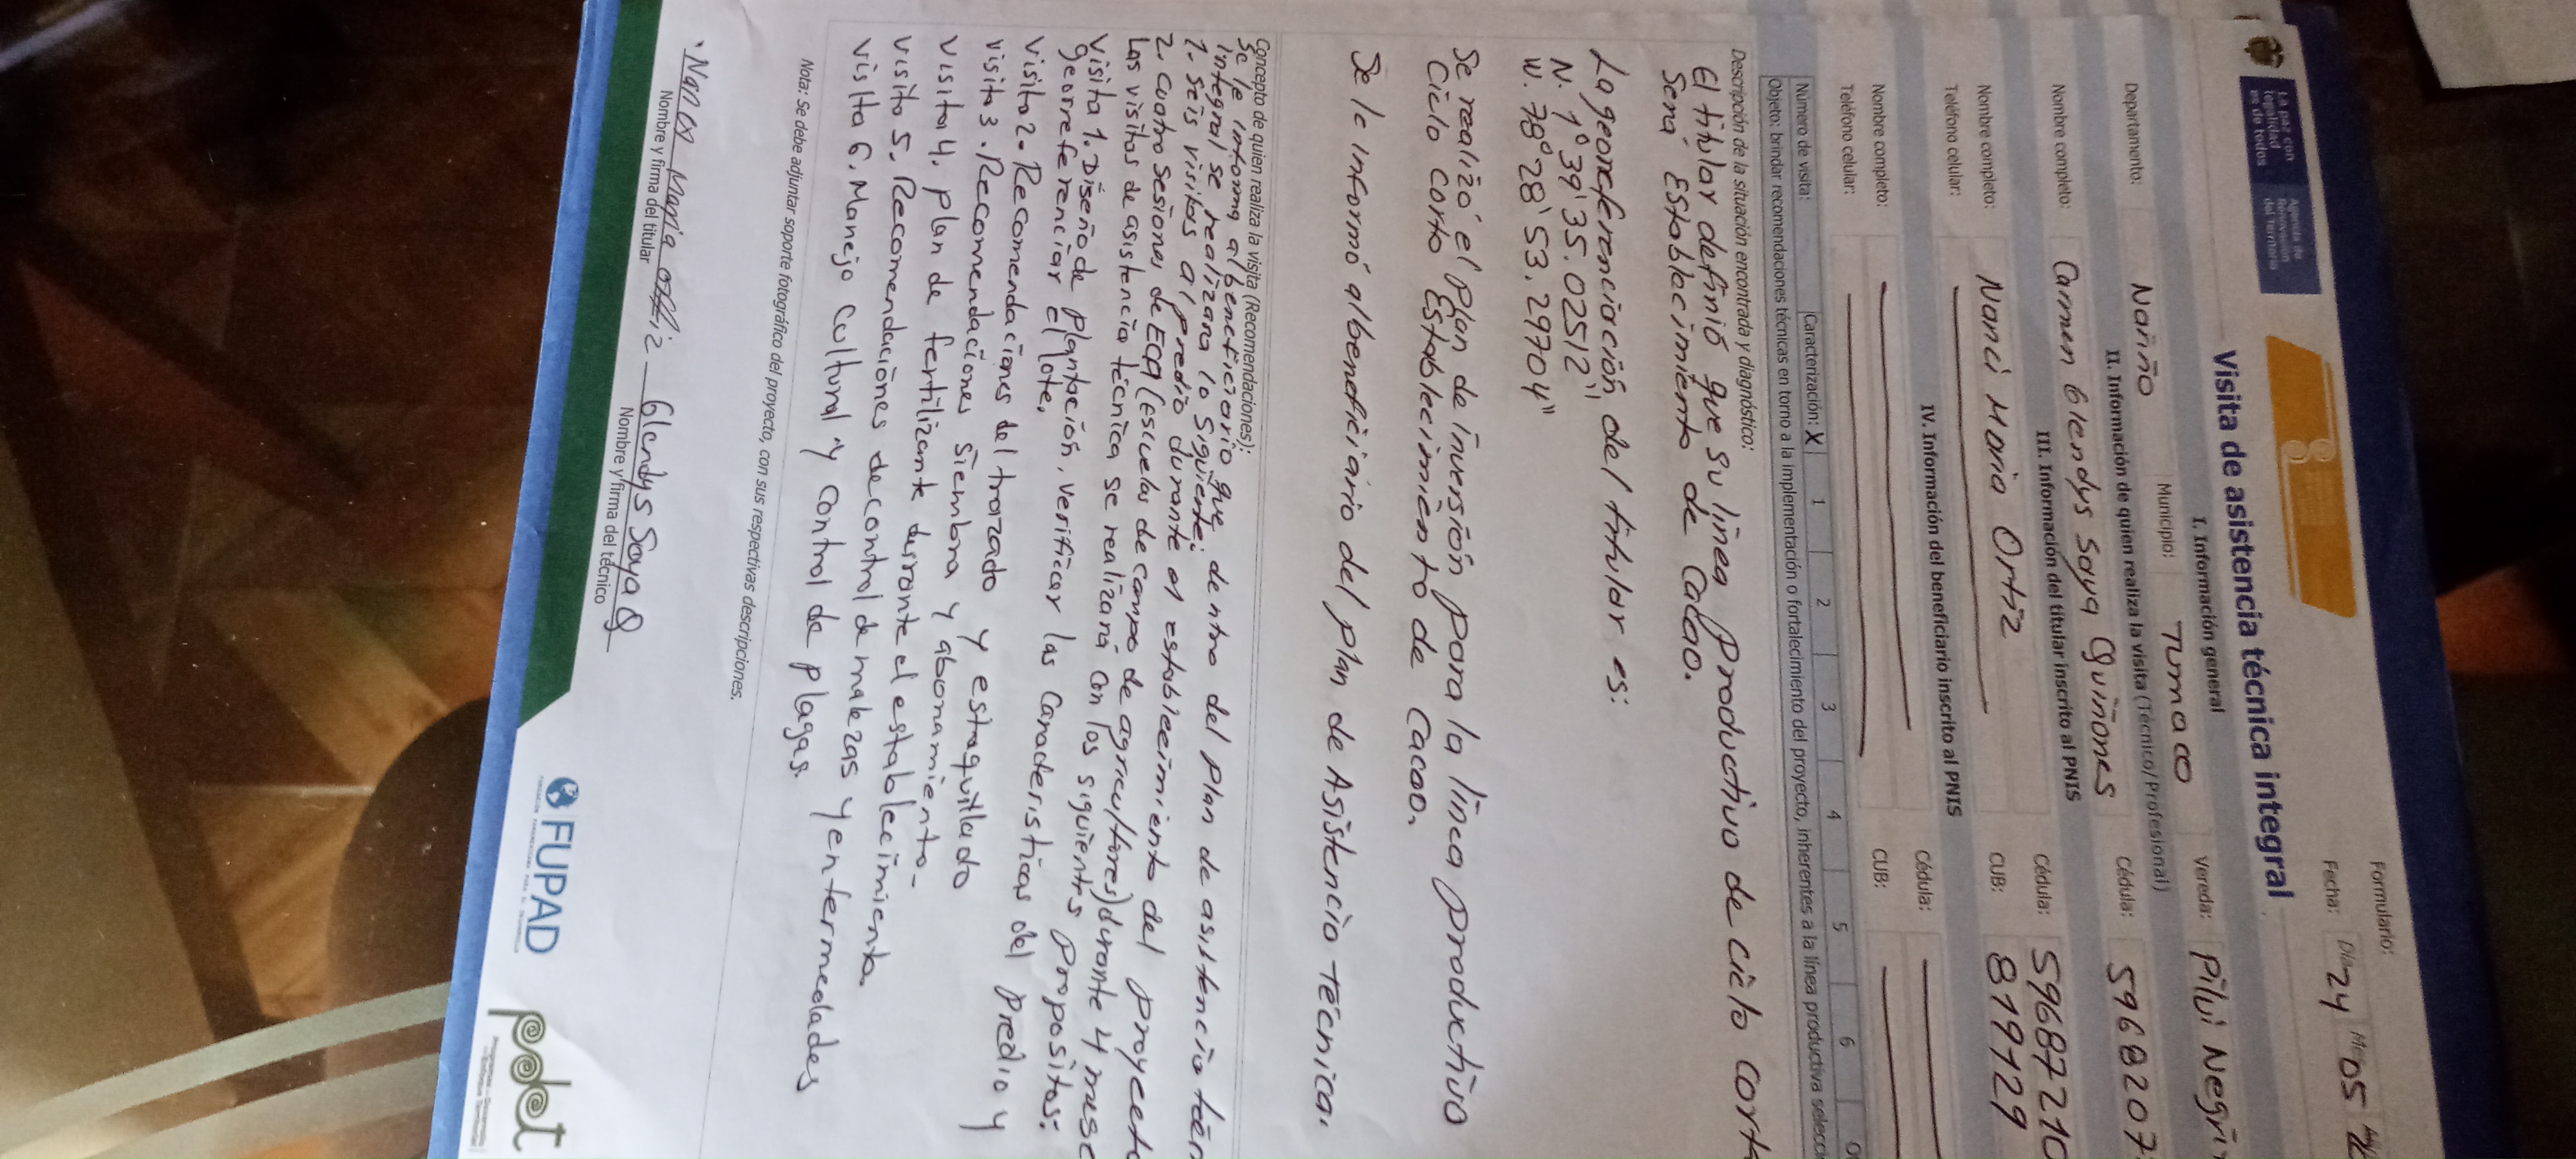 La paz con
legalidad
es de todos
Agencia de
Renovación
del Territorio
Visita de asistencia técnica integral
Formulario:
Fecha: Día 24 Mes 05
I. Información general
Departamento: Nariño Municipio: Tumaco Vereda: Pilvi Negri
II. Información de quien realiza la visita (Técnico/Profesional)
Nombre completo: Carmen Glendys Saya Quiñones Cédula: 5968207
III. Información del titular inscrito al PNIS
Nombre completo: Nanci Maria Ortiz Cédula: 59687210
Teléfono celular: CUB: 819129
IV. Información del beneficiario inscrito al PNIS
Nombre completo: Cédula:
Teléfono celular: CUB:
Número de visita: Caracterización: X 1 2 3 4 5 6 O
Objeto: brindar recomendaciones técnicas en torno a la implementación o fortalecimiento del proyecto, inherentes a la línea productiva selecc
Descripción de la situación encontrada y diagnóstico:
El titular definió que su línea productivo de ciclo cort
Será Establecimiento de Cacao.
La georeferenciación del titular es:
N. 1° 39' 35.02512''
W. 78° 28' 53.29704''
Se realizó el plan de inversión para la línea productivo
Ciclo corto Establecimiento de Cacao.
Se le informó al beneficiario del plan de Asistencia Técnica.
Concepto de quien realiza la visita (Recomendaciones):
Se le informa al beneficiario que dentro del plan de asistencia técn
integral se realizara lo Siguiente:
1. Seis visitas al predio durante el establecimiento del proyecto
2. cuatro Sesiones de ECA (escuelas de campo de agricultores) durante 4 mese
Las visitas de asistencia técnica se realizará con los siguientes propositos:
Visita 1. Diseño de plantación, verificar las Caracteristicas del predio y
georreferenciar el lote.
Visita 2. Recomendaciones del trazado y estaquillado
visita 3. Recomendaciones Siembra y abonamiento-
Visita 4. plan de fertilizante durante el establecimiento.
Visita 5. Recomendaciones de control de malezas y enfermedades
visita 6. Manejo cultural y control de plagas.
Nota: Se debe adjuntar soporte fotográfico del proyecto, con sus respectivas descripciones.
Glendys Saya Q
Nombre y firma del titular Nombre y firma del técnico
FUPAD
pdet